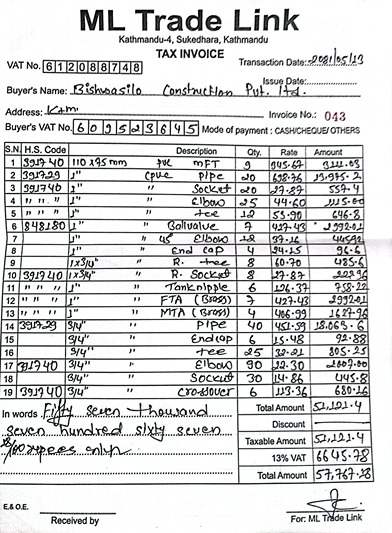 ML Trade Link
Kathmandu-4, Sukedhara, Kathmandu
TAX INVOICE
VAT No. 612088748 Transaction Date: 2081/05/13
Issue Date:
Buyer's Name: Bishwasilo Construction Pvt. ltd.
Address: Ktm Invoice No.: 043
Buyer's VAT No. 609523645 Mode of payment : CASH/CHEQUE/ OTHERS
S.N. H.S. Code Description Qty. Rate Amount
1 391740 110 x 75 mm pvc MFT 9
2 391729 1" cpvc pipe 20 698.76 13,975.2
3 391740 1" " Socket 20 27.87 557.4
4 " " " 1" " Elbow 25 44.60 1115.00
5 " " " 1" " tee 12 53.90 646.8
6 848180 1" " Ballvalve 7 427.43 2992.01
7 1" " 45° Elbow 12 37.16 445.92
8 1" " End cap 4 24.15 96.6
9 1 x 3/4" " R. tee 8 60.70 485.6
10 391740 1 x 3/4" " R. Socket 8 27.87 222.96
11 " " " 1" " Tanknipple 6 126.37 758.22
12 " " " 1" " FTA (Brass) 7 427.43 2992.01
13 " " " 1" " MTA (Brass) 4 406.99 1627.96
14 391729 3/4" " Pipe 40 451.59 18.063.6
15 3/4" " Endcap 6 15.48 92.88
16 3/4" " tee 25 32.21 805.25
17 391740 3/4" " Elbow 90 22.30 2007.00
18 3/4" " Socket 30 14.86 445.8
19 391740 3/4" " Crossover 6 113.36 680.16
In words Fifty seven thousand Total Amount 51,121.4
seven hundred sixty seven Discount
28/100 rupees only. Taxable Amount 51,121.4
13% VAT 6645.78
Total Amount 57,767.18
E.& O.E.
Received by For: ML Trade Link